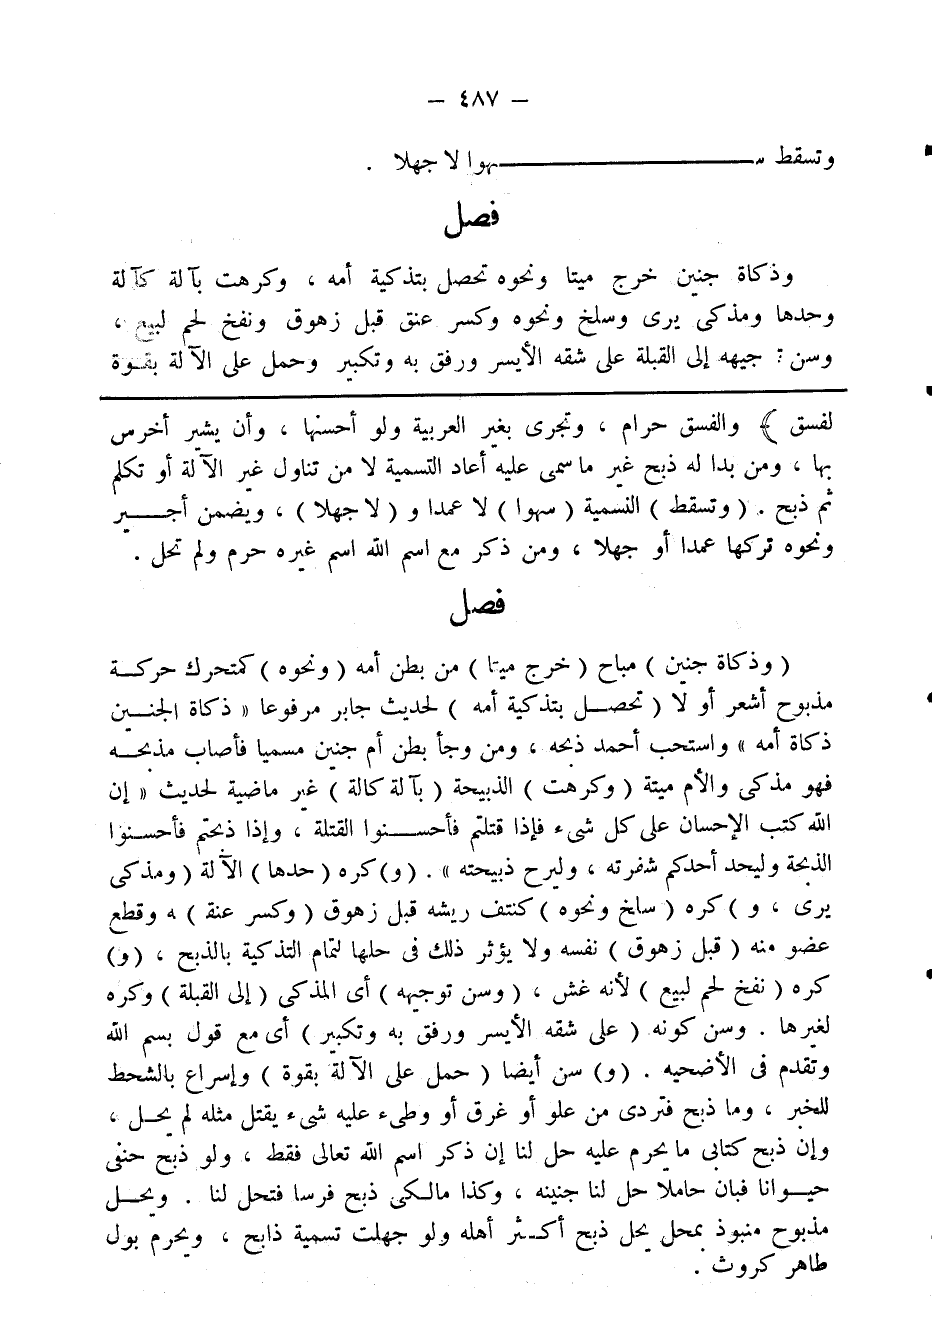 — ٤٨٧ —
وتسقط سهوا لا جهلا .
فصل
وذكاة جنين خرج ميتا ونحوه تحصل بتذكية أمه ، وكرهت بآلة كآلة
وحدها ومذكى يرى وسلخ ونحوه وكسر عنق قبل زهوق ونفخ لحم لبيع ،
وسن : جيهه إلى القبلة على شقه الأيسر ورفق به وتكبير وحمل على الآلة بقوة
لفسق ﴾ والفسق حرام ، وتجرى بغير العربية ولو أحسنها ، وأن يشير أخرس
بها ، ومن بدا له ذبح غير ما سمى عليه أعاد التسمية لا من تناول غير الآلة أو تكلم
ثم ذبح . ( وتسقط ) التسمية ( سهوا ) لا عمدا و ( لا جهلا ) ، ويضمن أجـــير
ونحوه تركها عمدا أو جهلا ، ومن ذكر مع اسم الله اسم غيره حرم ولم تحل .
فصل
( وذكاة جنين ) مباح ( خرج ميتا ) من بطن أمه ( ونحوه ) كمتحرك حركـــة
مذبوح أشعر أو لا ( تحصـــل بتذكية أمه ) لحديث جابر مرفوعا « ذكاة الجنـــين
ذكاة أمه » واستحب أحمد ذبحه ، ومن وجأ بطن أم جنين مسميا فأصاب مذبحـــه
فهو مذكى والأم ميتة ( وكرهت ) الذبيحة ( بآلة كالة ) غير ماضية لحديث « إن
الله كتب الإحسان على كل شىء فإذا قتلتم فأحســـنوا القتلة ، وإذا ذبحتم فأحســـنوا
الذبحة وليحد أحدكم شفرته ، وليرح ذبيحته » . ( و ) كره ( حدها ) الآلة ( ومذكى
يرى ، و ) كره ( سلخ ونحوه ) كنتف ريشه قبل زهوق ( وكسر عنقـ ) ـه وقطع
عضو منه ( قبل زهوق ) نفسه ولا يؤثر ذلك فى حلها لتمام التذكية بالذبح ، ( و )
كره ( نفخ لحم لبيع ) لأنه غش ، ( وسن توجيهه ) أى المذكى ( إلى القبلة ) وكره
لغيرها . وسن كونه ( على شقه الأيسر ورفق به وتكبير ) أى مع قول بسم الله
وتقدم فى الأضحيه . ( و ) سن أيضا ( حمل على الآلة بقوة ) وإسراع بالشحط
للخبر ، وما ذبح فتردى من علو أو غرق أو وطىء عليه شىء يقتل مثله لم يحـــل ،
وإن ذبح كتابى ما يحرم عليه حل لنا إن ذكر اسم الله تعالى فقط ، ولو ذبح حنفى
حيـــوانا فبان حاملا حل لنا جنينه ، وكذا مالكى ذبح فرسا فتحل لنا . ويحـــل
مذبوح منبوذ بمحل يحل ذبح أكـــثر أهله ولو جهلت تسمية ذابح ، ويحرم بول
طاهر كروث .